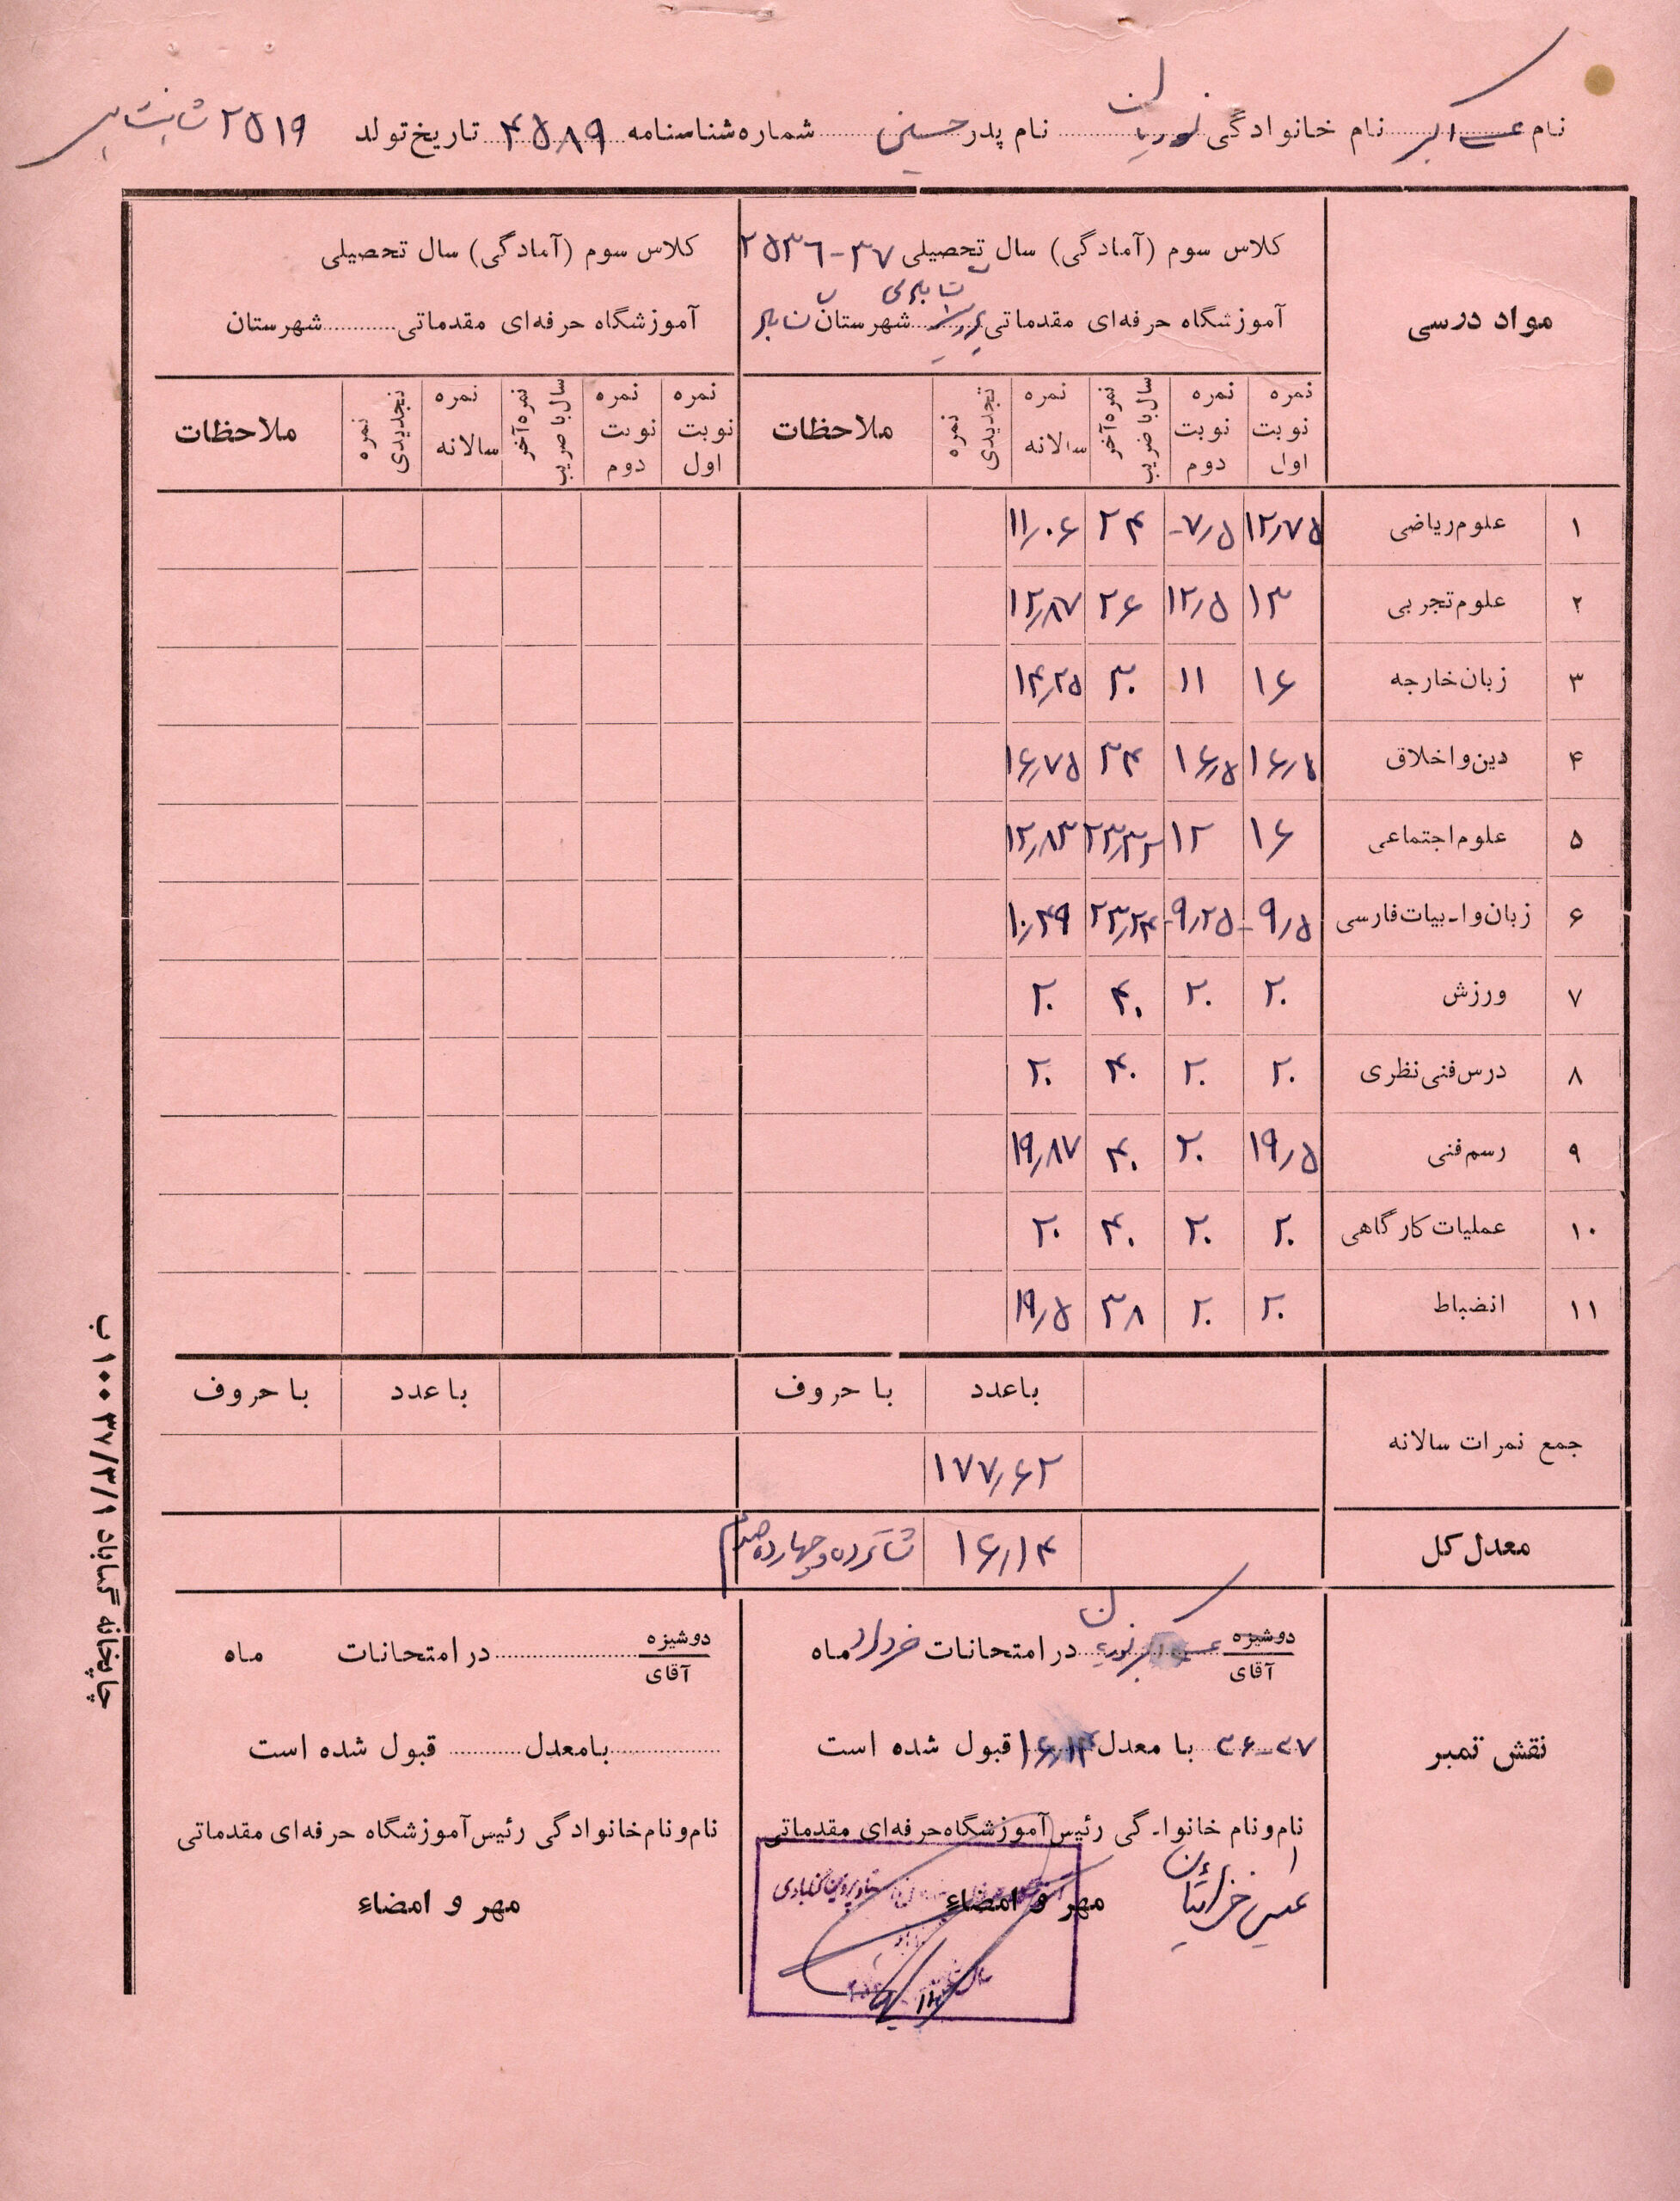 نام علی اکبر نام خانوادگی نوریان نام پدر حسین شماره شناسنامه ۴۵۸۹ تاریخ تولد ۲۵۱۹
مواد درسی
کلاس سوم (آمادگی) سال تحصیلی ۳۷-۲۵۳۶
آموزشگاه حرفه‌ای مقدماتی شهرستان
نمره نوبت اول نمره نوبت دوم نمره آخر سال با ضریب نمره سالانه نمره تجدیدی ملاحظات
کلاس سوم (آمادگی) سال تحصیلی
آموزشگاه حرفه‌ای مقدماتی شهرستان
نمره نوبت اول نمره نوبت دوم نمره آخر سال با ضریب نمره سالانه نمره تجدیدی ملاحظات
۱ علوم ریاضی ۱۲٫۷۵ ۷٫۵- ۲۴ ۱۱٫۰۶
۲ علوم تجربی ۱۳ ۱۲٫۵ ۲۶ ۱۲٫۸۷
۳ زبان خارجه ۱۶ ۱۱ ۳۰ ۱۴٫۲۵
۴ دین و اخلاق ۱۶٫۵ ۱۶٫۵ ۳۴ ۱۶٫۷۵
۵ علوم اجتماعی ۱۶ ۱۲ ۲۳٫۳۲ ۱۲٫۸۳
۶ زبان و ادبیات فارسی ۹٫۵- ۹٫۲۵- ۲۳٫۲۴ ۱۰٫۴۹
۷ ورزش ۲۰ ۲۰ ۴۰ ۲۰
۸ درس فنی نظری ۲۰ ۲۰ ۴۰ ۲۰
۹ رسم فنی ۱۹٫۵ ۲۰ ۴۰ ۱۹٫۸۷
۱۰ عملیات کارگاهی ۲۰ ۲۰ ۴۰ ۲۰
۱۱ انضباط ۲۰ ۲۰ ۳۸ ۱۹٫۵
جمع نمرات سالانه با عدد با حروف با عدد با حروف
۱۷۷٫۶۲
معدل کل ۱۶٫۱۴ شانزده و چهارده صدم
نقش تمبر
دوشیزه
آقای علی اکبر نوریان در امتحانات خرداد ماه
۳۷-۳۶ با معدل ۱۶٫۱۴ قبول شده است
نام و نام خانوادگی رئیس آموزشگاه حرفه‌ای مقدماتی
مهر و امضاء
دوشیزه
آقای در امتحانات ماه
بامعدل قبول شده است
نام و نام خانوادگی رئیس آموزشگاه حرفه‌ای مقدماتی
مهر و امضاء
چاپخانه گناباد ۳۷/۳/۱ ۱۰۰ ب